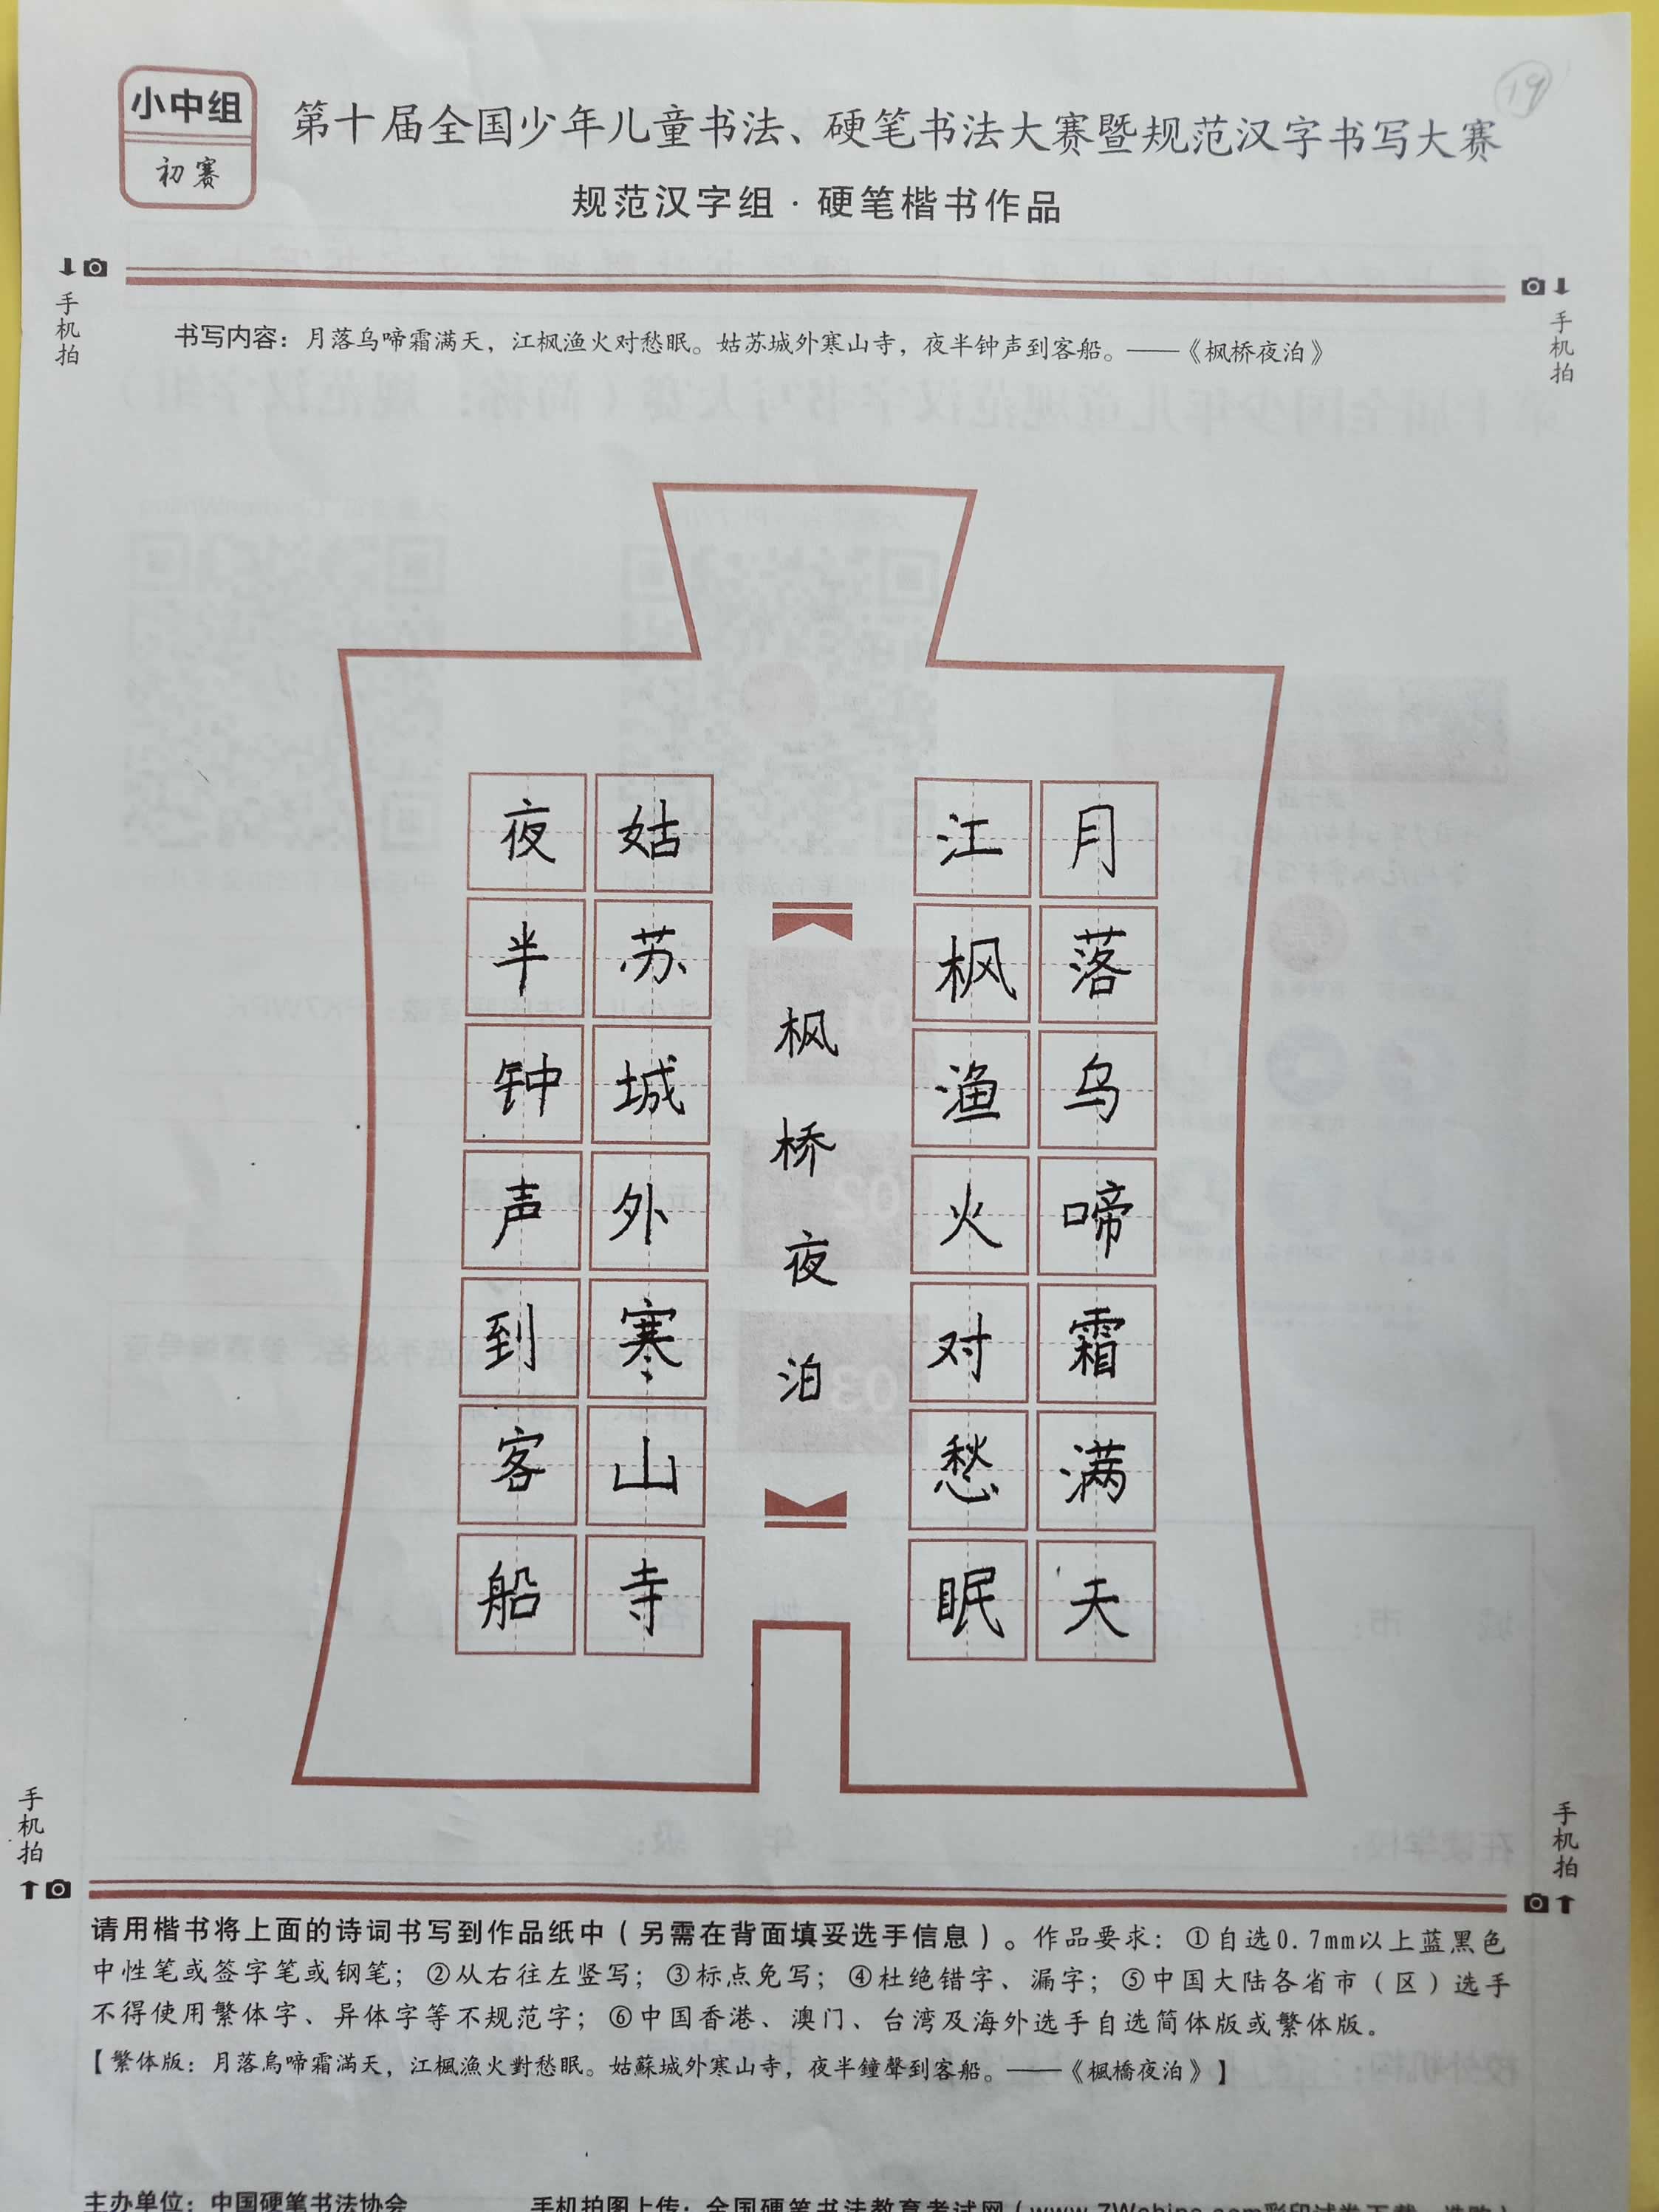 小中组
初赛
19
第十届全国少年儿童书法、硬笔书法大赛暨规范汉字书写大赛
规范汉字组·硬笔楷书作品
手机拍
手机拍
书写内容：月落乌啼霜满天，江枫渔火对愁眠。姑苏城外寒山寺，夜半钟声到客船。——《枫桥夜泊》
月落乌啼霜满天
江枫渔火对愁眠
枫桥夜泊
姑苏城外寒山寺
夜半钟声到客船
手机拍
手机拍
请用楷书将上面的诗词书写到作品纸中（另需在背面填妥选手信息）。作品要求：①自选0.7mm以上蓝黑色
中性笔或签字笔或钢笔；②从右往左竖写；③标点免写；④杜绝错字、漏字；⑤中国大陆各省市（区）选手
不得使用繁体字、异体字等不规范字；⑥中国香港、澳门、台湾及海外选手自选简体版或繁体版。
【繁体版：月落烏啼霜滿天，江楓漁火對愁眠。姑蘇城外寒山寺，夜半鐘聲到客船。——《楓橋夜泊》】
主办单位：中国硬笔书法协会
手机拍图上传：全国硬笔书法教育考试网